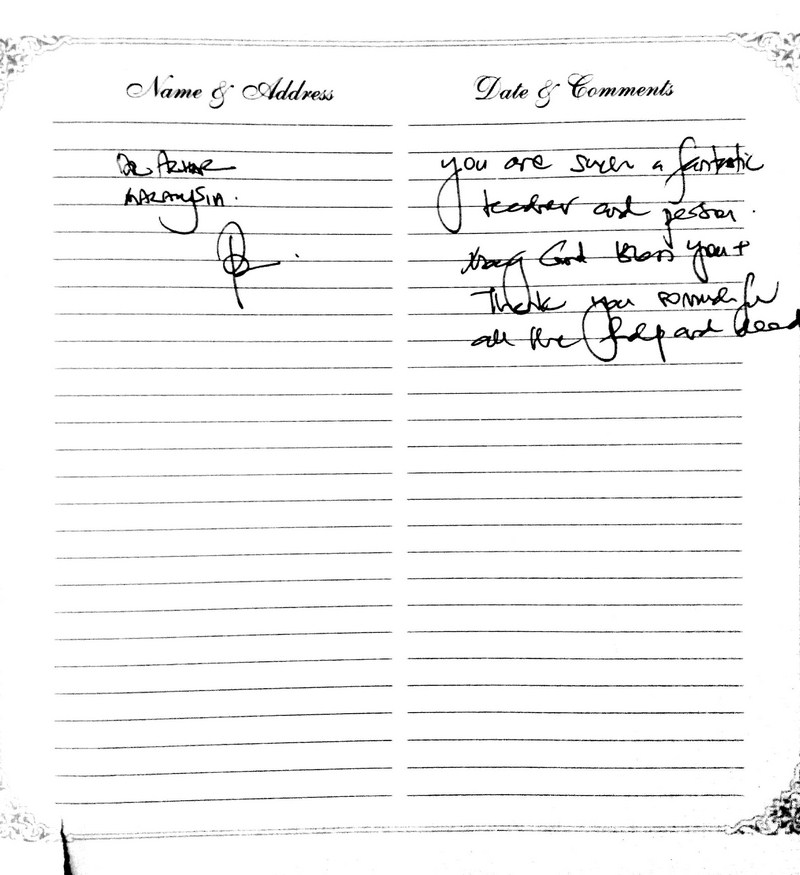 Name & Address
Date & Comments
Dr
MALAYSIA.
you are such a fantastic
teacher and person.
May God Bless you +
Thank you so much for
all the help and